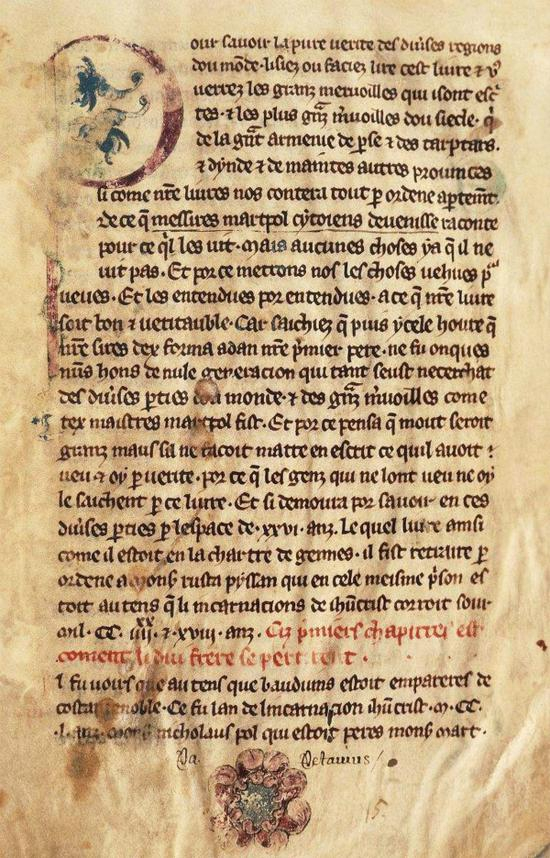 our savoir la pure verite des diũses regions
dou mõde. lisiez ou faciez lire cest livre ⁊ v̾
verrez les granz merveilles qui isont esc̾
tes. ⁊ les plus gñz m̃voilles dou siecle. q̃
de la gñt armenie de p̱se ⁊ des tarptars.
⁊ dynde ⁊ de maintes autres provinces
si come nr̃e livres nos contera tout p̱ ordene ap̱temt̃.
de ce q̃ messires martpol cytoiens devenisse raconte
pour ce q̃l les vit. Mais aucunes choses ya q̃ il ne
vit pas. Et por ce metrons nos les choses vehues p̃
veues. Et les entendues por entendues. a ce q̃ nr̃e livre
soit bon ⁊ veritauble. Car saichiez q̃ puis ycele houre q̃
nr̃e sires dex forma adan nr̃e p̃mier pere. ne fu onques
nuns hons de nule generacion qui tant seust
des diũses p̱ties dou monde. ⁊ des gñz m̃voilles come
maistres marcpol fist. Et por ce pensa q̃ mout seroit
granz maus sa ne matre en escrit ce quil avoit
veu ⁊ oy p̱ verite. por ce q̃ les genz qui ne lont veu ne oy
le saichent p̱ ce livre. Et si demoura por savoir en ces
diũses p̱ties p̱ lespace de. xxvi. anz. Le quel livre ainsi
come il estoit en la chartre de gennes. il fist retraire p̱
ordene a mons̃ rusta pysan qui en cele meisme p̱son es
toit au tens q̃ li incarnacions de ih̃ucrist corroit sour
mil. CC. iiijˣˣ. ⁊ xviii. anz. Ci p̃miers chapitres est
coment li dui frere se partirent.
l fu voirs que au tens que bauduins estoit empareres de
costantinoble. Ce fu lan de lincarnacion ih̃ucrist. M. CC.
.l. anz. mons̃ nicholaus pol qui estoit peres mons̃ marc.
Pa. Petavius
15.